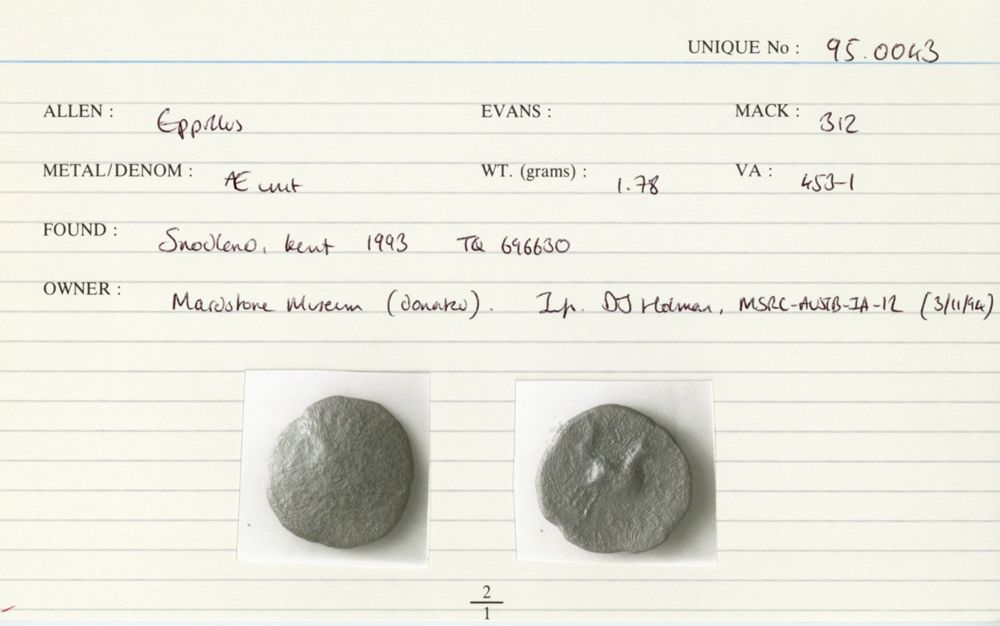 UNIQUE No : 95.0043
ALLEN : Eppillus EVANS : MACK : 312
METAL/DENOM : Æ unit WT. (grams) : 1.78 VA : 453-1
FOUND : Snodland, Kent 1993 TQ 696630
OWNER : Maidstone Museum (donated). Inf. DJ Holman, MSRC-AUSTB-IA-12 (3/11/94)
2
1